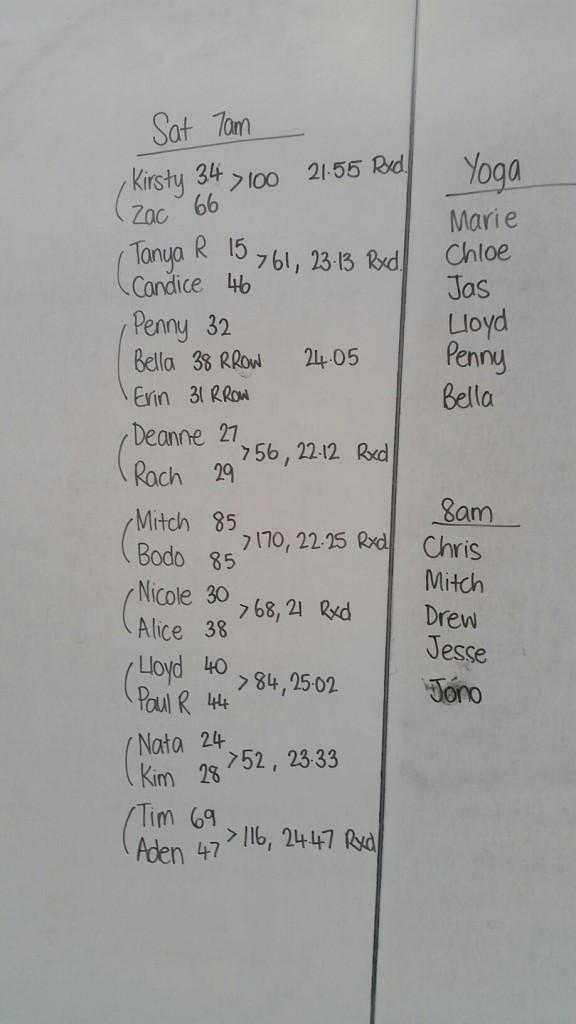 Sat 7am
Kirsty 34 >100 21.55 Rxd.
Zac 66
Tanya R 15 >61, 23.13 Rxd.
Candice 46
Penny 32
Bella 38 RRow 24.05
Erin 31 RRow
Deanne 27 >56, 22.12 Rxd
Rach 29
Mitch 85 >170, 22.25 Rxd
Bodo 85
Nicole 30 >68, 21 Rxd
Alice 38
Lloyd 40 >84, 25.02
Paul R 44
Nata 24 >52, 23.33
Kim 28
Tim 69 >116, 24.47 Rxd
Aden 47
Yoga
Marie
Chloe
Jas
Lloyd
Penny
Bella
8am
Chris
Mitch
Drew
Jesse
Jono